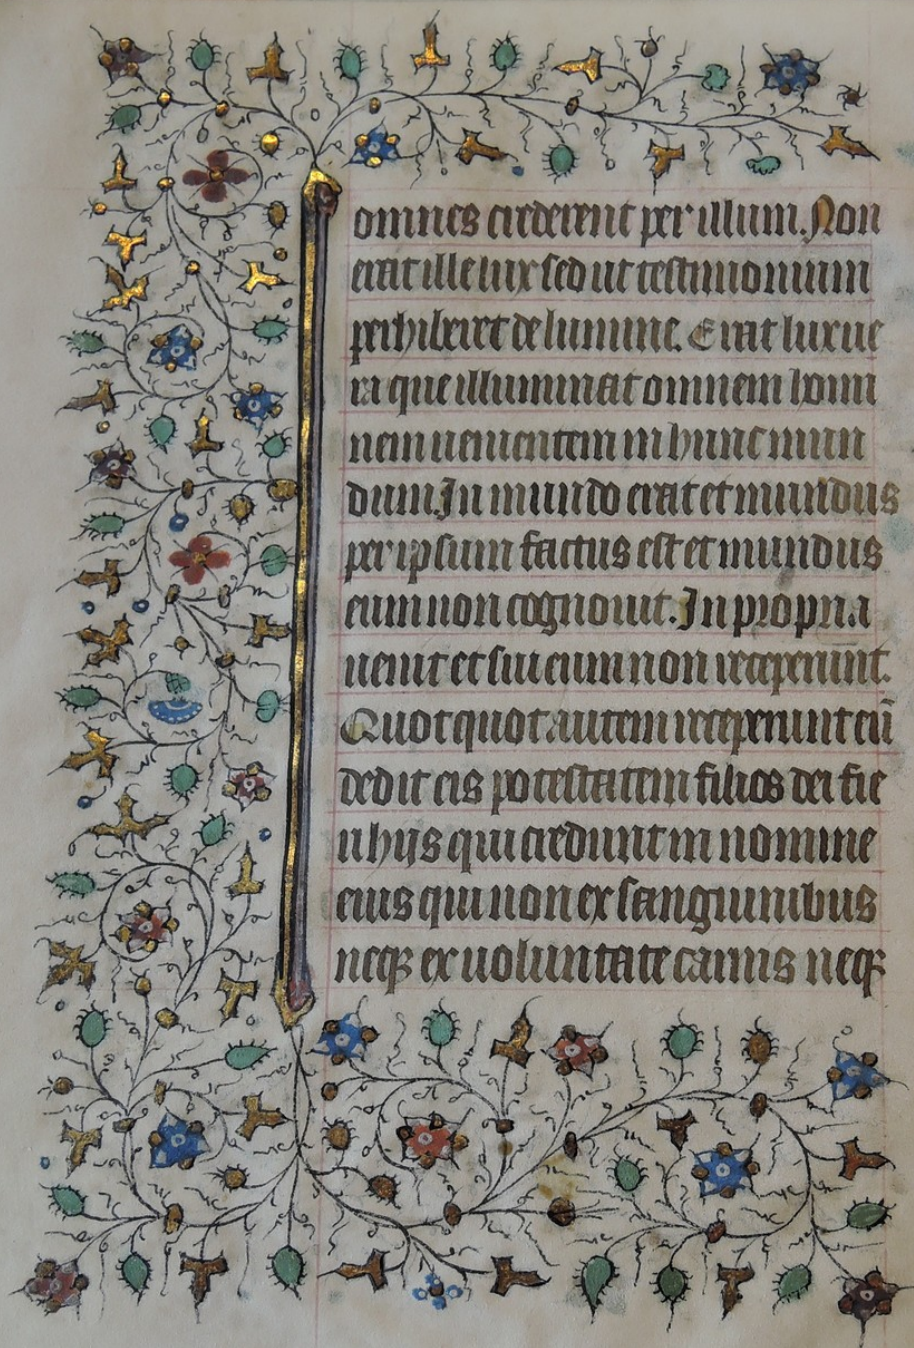 omnes crederent per illum. Non
erat ille lux sed ut testimonium
perhiberet de lumine. Erat lux ue
ra que illuminat omnem homi
nem uenientem in hunc mun
dum. In mundo erat et mundus
per ipsum factus est et mundus
eum non cognouit. In propria
uenit et sui eum non receperūnt.
Quotquot autem receperunt eū
dedit eis potestatem filios dei fie
ri hijs qui credunt in nomine
eius qui non ex sanguinibus
neqꝫ ex uoluntate carnis neqꝫ